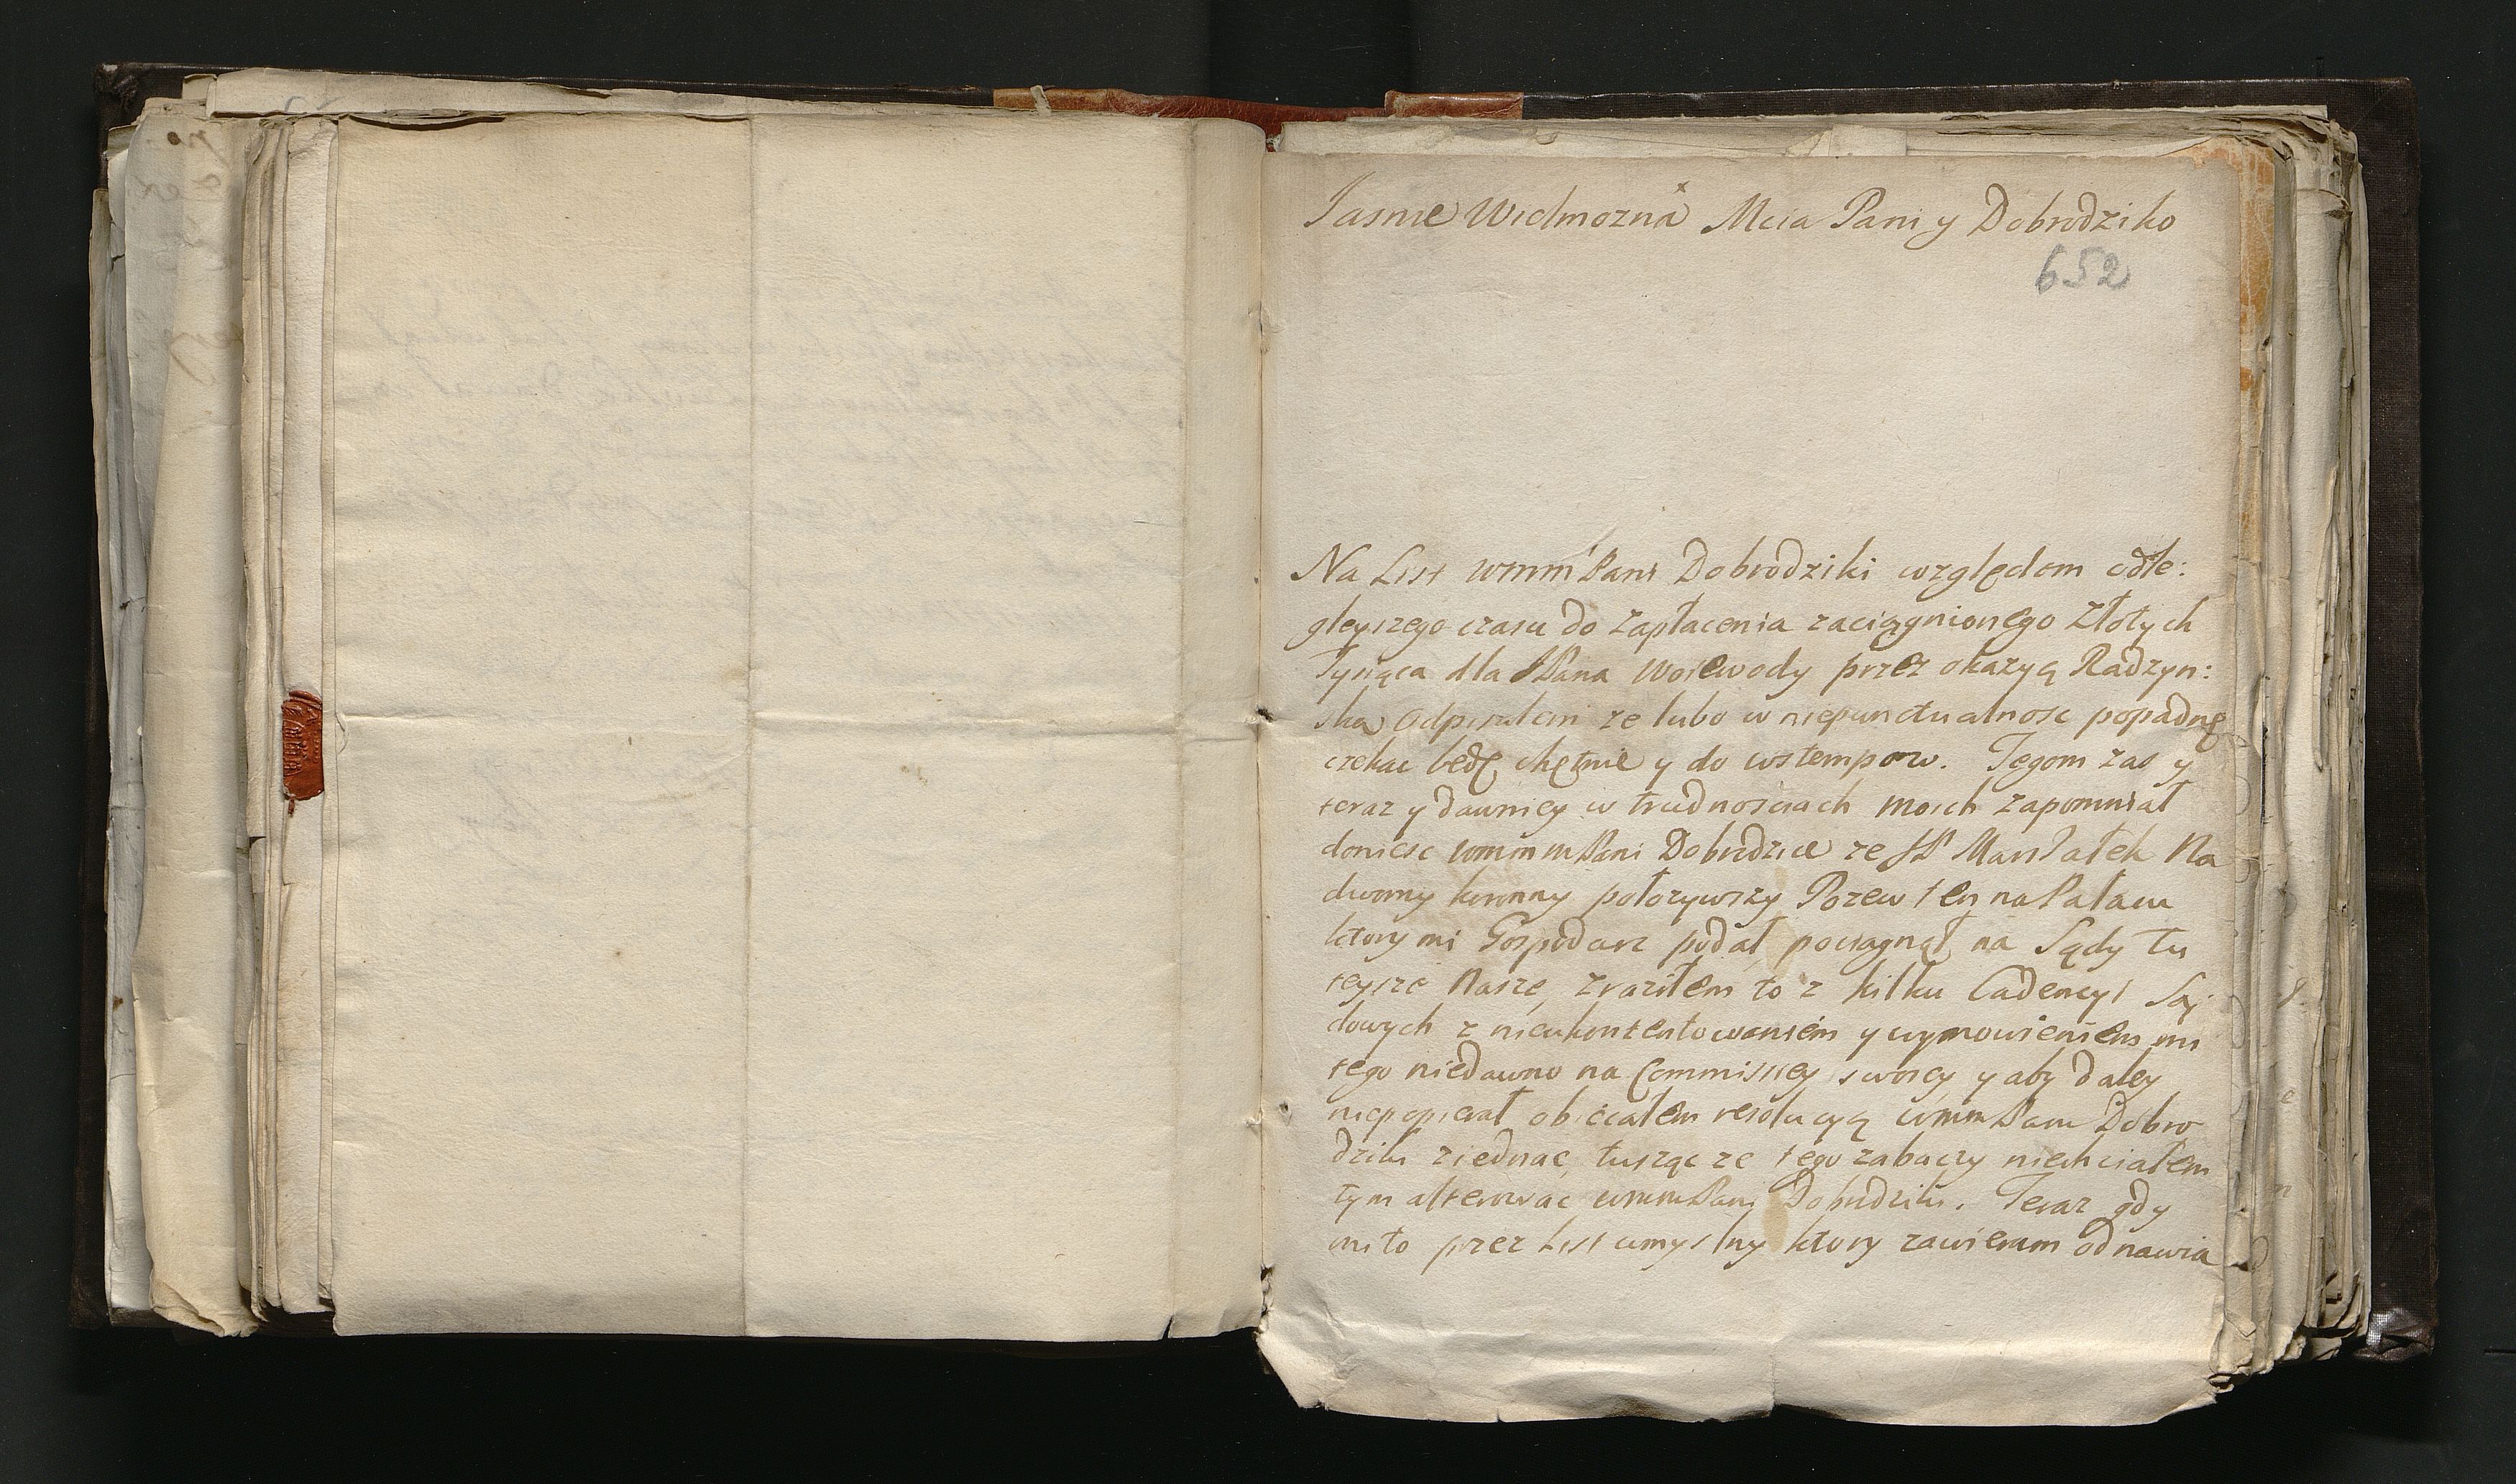 Jasnie Wielmozna Mcia Pani y Dobrodziko
652
Na List WMM Pani Dobrodziki względem odle:
gleyszego czasu do zapłacenia zaciągnionego Złotych
Tysiąca dla JPana Woiewody przez okazyą Radzyn:
ską Odpisałem ze lubo w niepunctualnosc popadnę
czekac będę chętnie y do wstempow. Tegom zas y
teraz y dawniey w trudnosciach moich zapomniał
doniesc WMM Pani Dobrodzice ze JP Marszałek Na
dworny koronny położywszy Pozew ten na Pałacu
ktory mi Gospodarz podał pociagnął na Sądy tu
teysze Nasze, zraziłem to z kilku Cadencyi Są
dowych z nieukontentowaniem y wymowieniem mi
tego niedawno na Commissiey swoiey y aby daley
niepopierał obiecałem resolucyą WMM Pani Dobro
dziki ziednac, tusząc ze tego zabaczy niechciałem
tym alterowac WMM Pani Dobrodziki. Teraz gdy
mi to przez List umyslny ktory zawieram odnawia